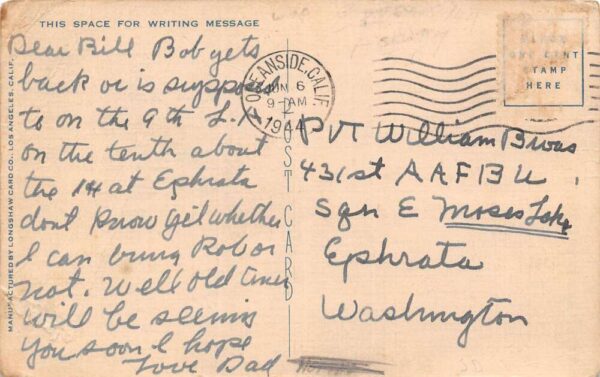 THIS SPACE FOR WRITING MESSAGE
Dear Bill Bob gets
back or is suppose
to on the 9th
on the tenth about
the 14 at Ephrata
dont know yet whether
I can bring Rob or
not. Well old timer
will be seeing
you soon I hope
Love Dad
MANUFACTURED BY LONGSHAW CARD CO., LOS ANGELES, CALIF.
POST CARD
OCEANSIDE, CALIF.
JUN 6
9-AM
194
ONE CENT
STAMP
HERE
PVT William
431st AAFBU
Sqn E Moses Lake
Ephrata
Washington